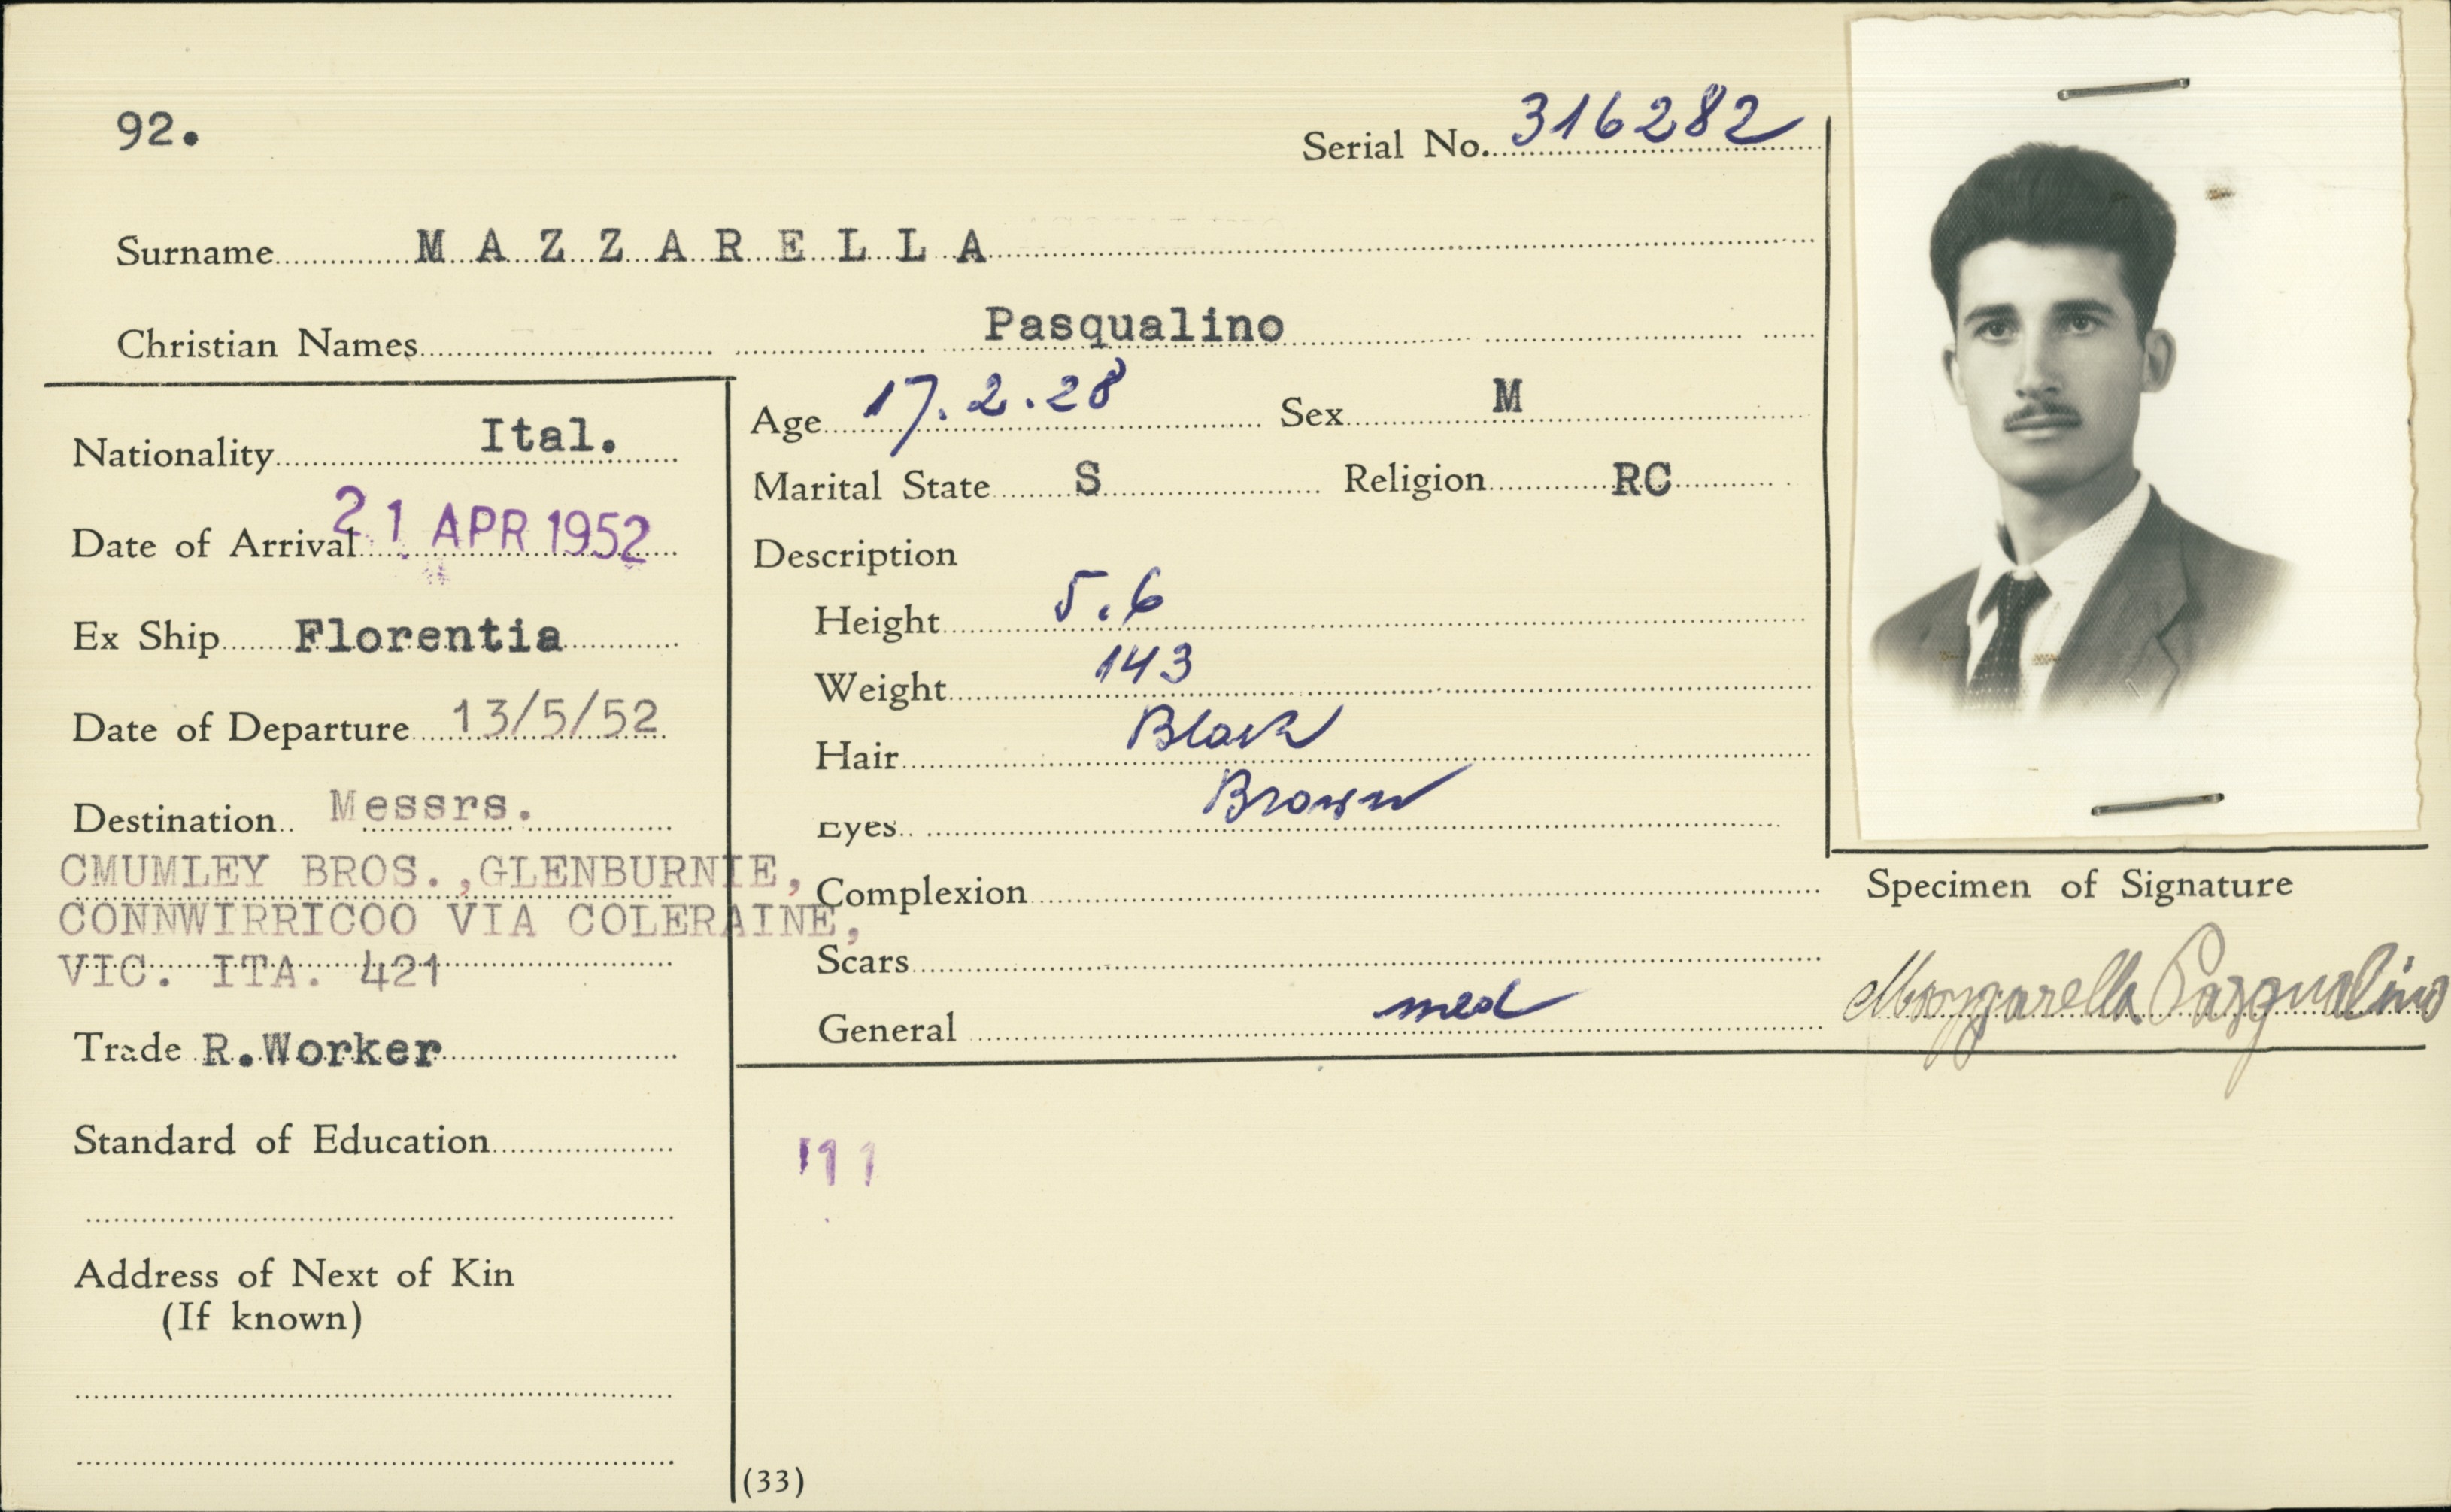 92.
Serial No. 316282
Surname MAZZARELLA
Christian Names Pasqualino
Nationality Ital.
Date of Arrival 21 APR 1952
Ex Ship Florentia
Date of Departure 13/5/52
Destination Messrs.
CMUMLEY BROS.,GLENBURNIE,
CONNWIRRICOO VIA COLERAINE,
VIC. ITA. 421
Trade R.Worker
Standard of Education
Address of Next of Kin
(If known)
Age 17.2.28 Sex M
Marital State S Religion RC
Description
Height 5.6
Weight 143
Hair Black
Eyes Brown
Complexion
Scars
General med
Specimen of Signature
Mazzarella Pasqualino
(33)